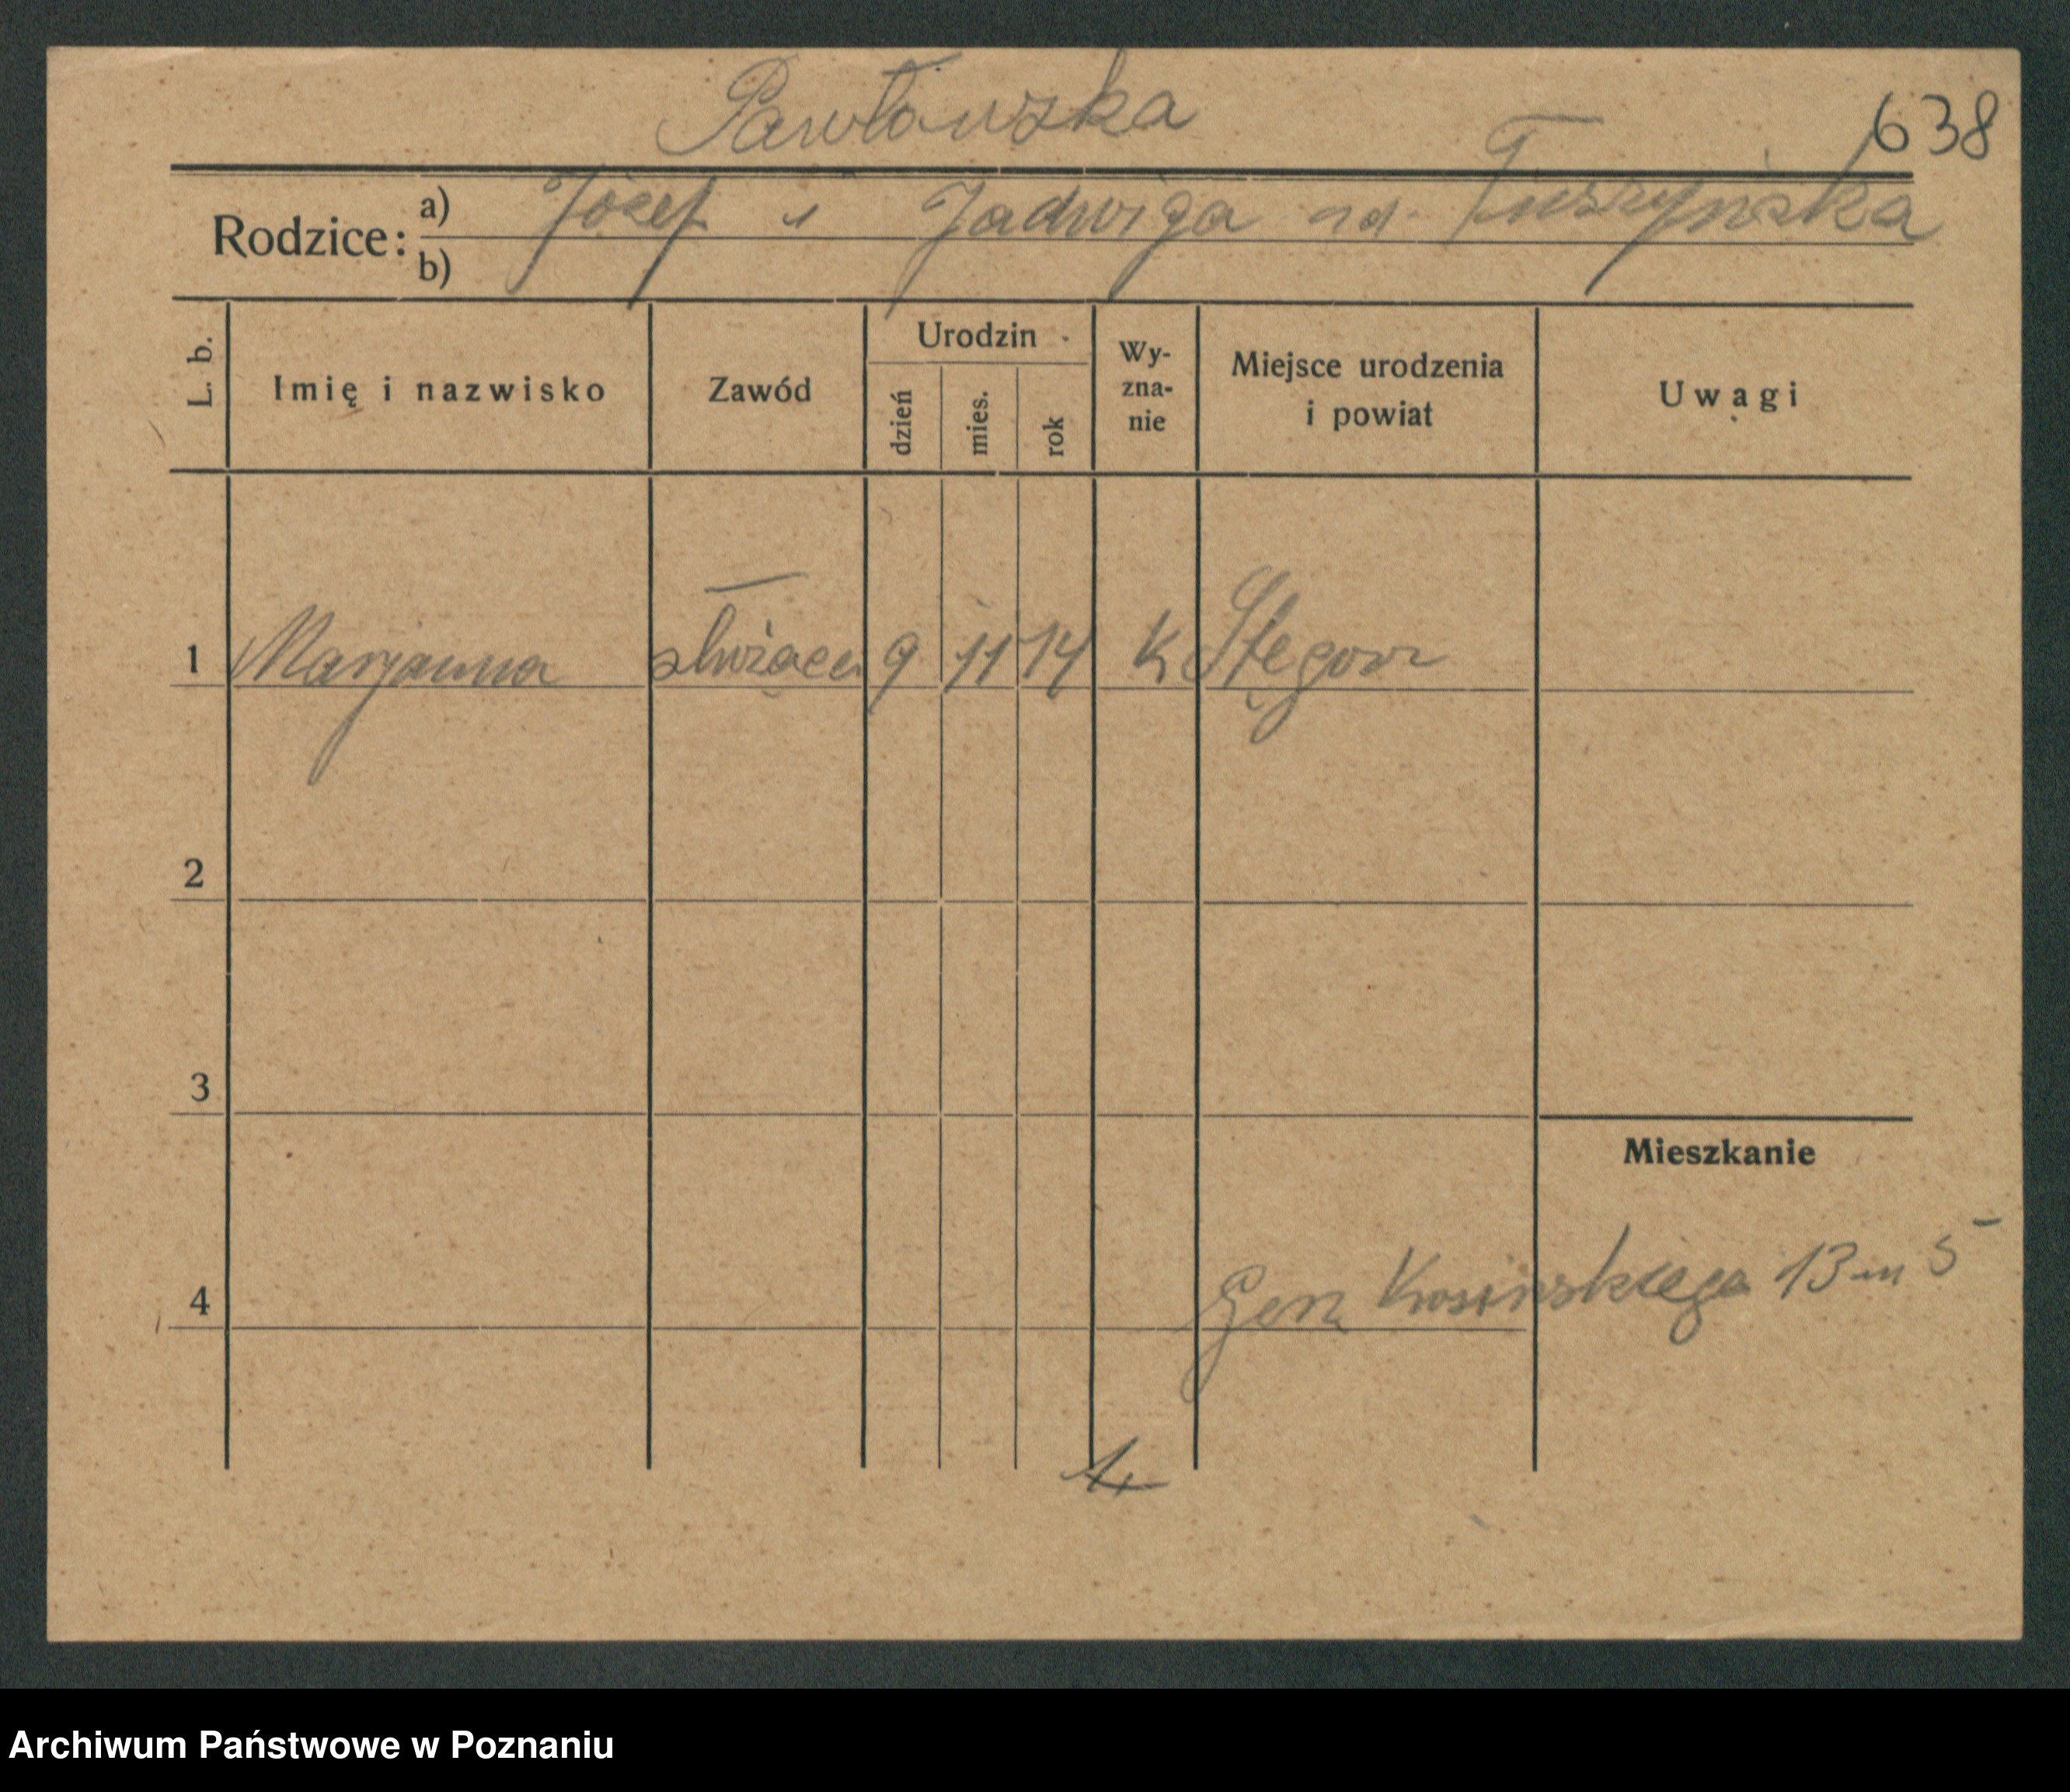 Pawłowska
638
Rodzice: a) Józef i Jadwiga rd. Tuszyńska
b)
L. b. Imię i nazwisko Zawód Urodzin dzień mies. rok Wy-zna-nie Miejsce urodzenia i powiat Uwagi
1 Marjanna służąca 9 11 14 K Stęgosz
2
3
Mieszkanie
4 Gen. Kosińskiego 13 m 5
Archiwum Państwowe w Poznaniu